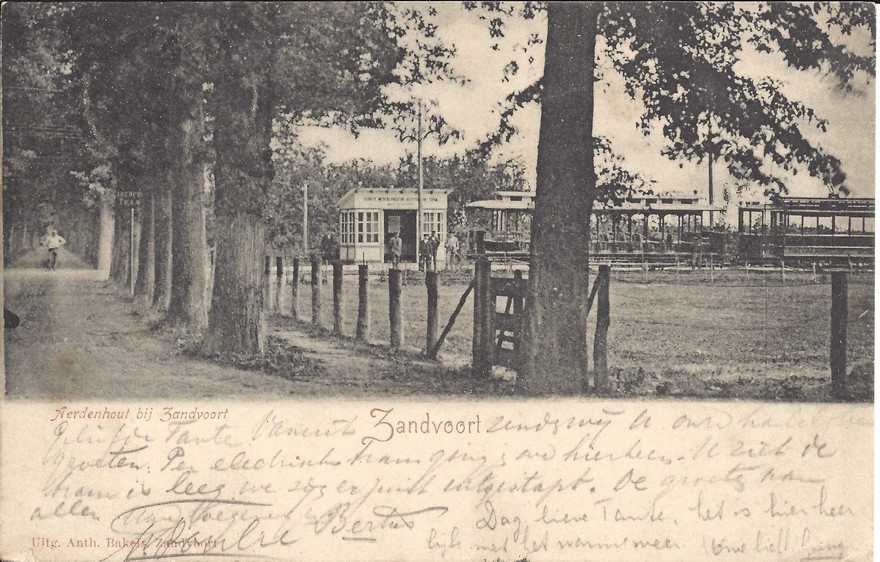 Aerdenhout bij Zandvoort
Zandvoort
Geliefde Tante. Vanuit zend wij U onze hartelijke
groeten. Per electrische tram ging we hierheen. U ziet de
tram is leeg we zijn er juist uitgestapt. De groeten aan
allen Bertus Dag lieve Tante, het is hier heer
lijk met het warme weer.
Uitg. Anth. Bakels, Zandvoort